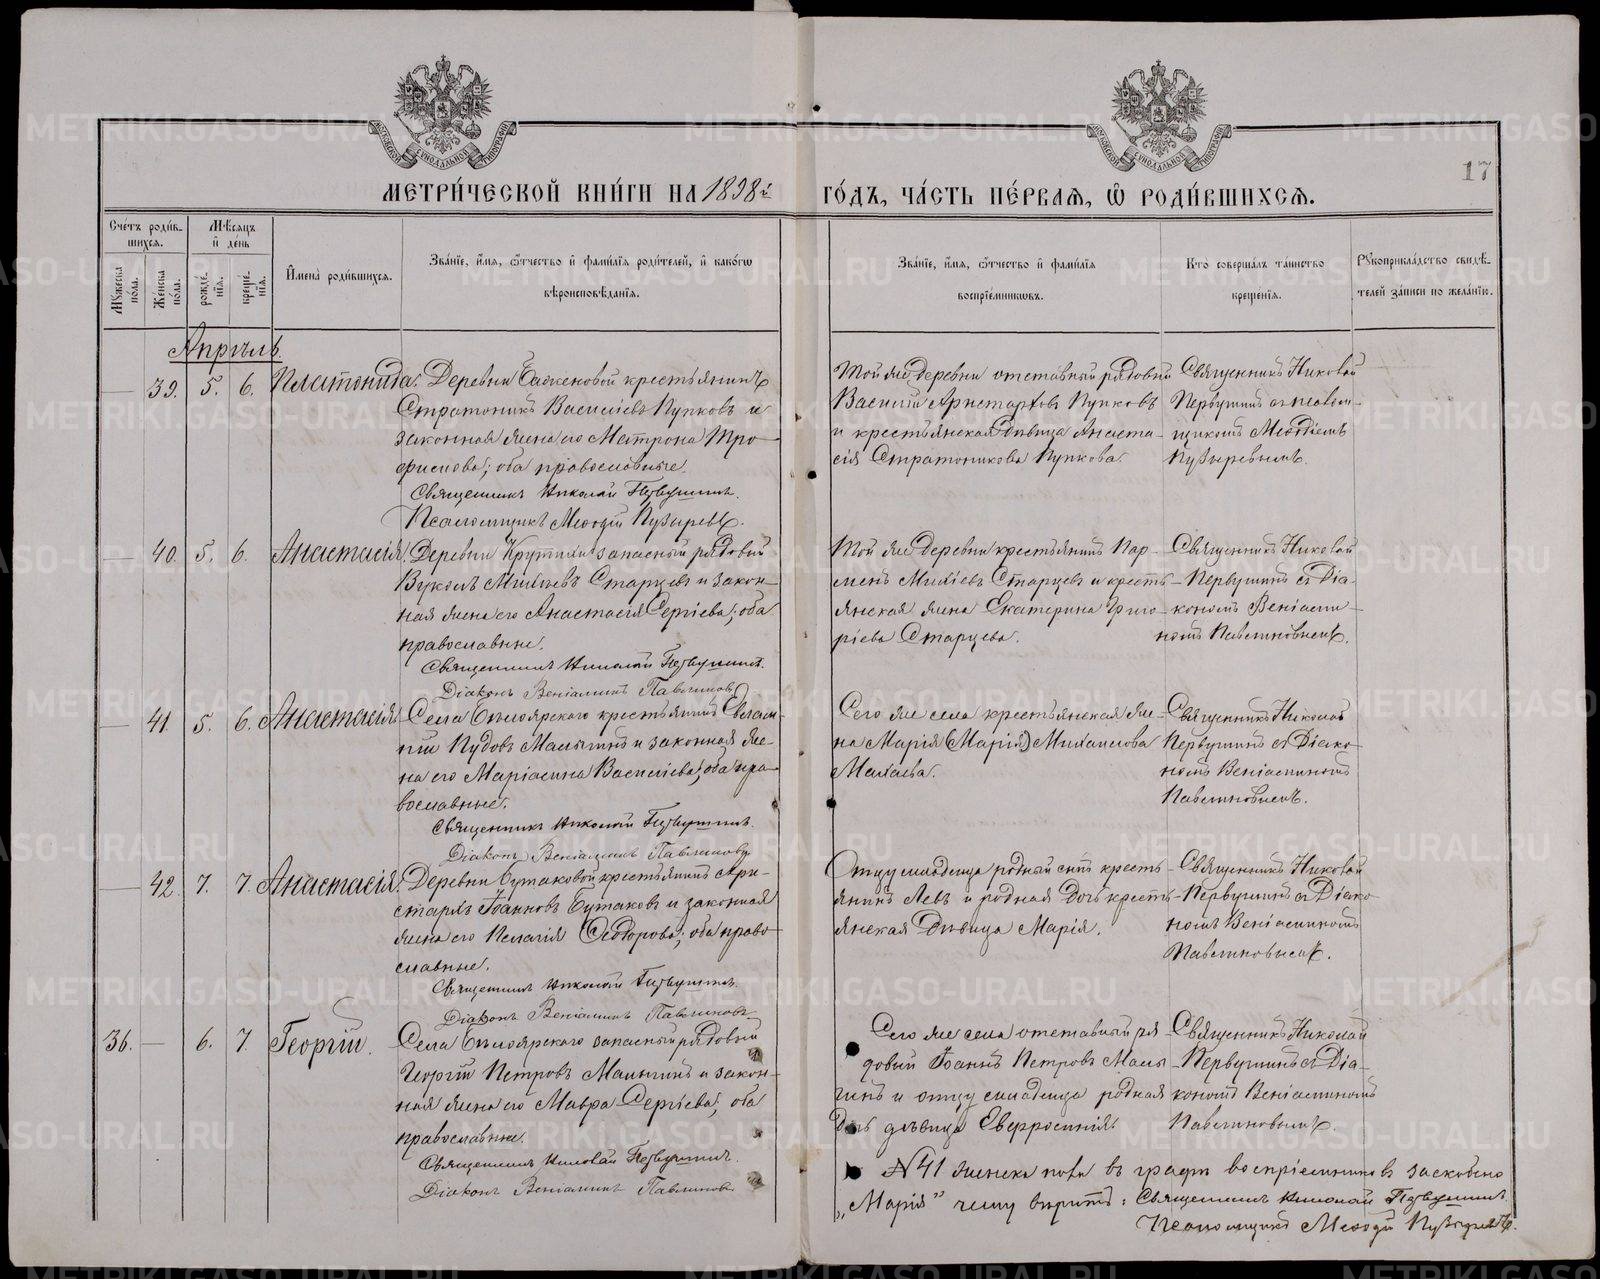 17
МОСКОВСКОЙ СѴНОДАЛЬНОЙ ТИПОГРАФІИ
МОСКОВСКОЙ СѴНОДАЛЬНОЙ ТИПОГРАФІИ
МЕТРИ́ЧЕСКОЙ КНИ́ГИ НА 1898й ГО́ДЪ, ЧА́СТЬ ПЕ́РВАЯ, Ѡ РОДИ́ВШИХСЯ.
Сче́тъ роди́вшихся.
Мѣ́сяцъ и҆ де́нь
Мꙋ́жеска по́ла.
Же́нска по́ла.
рожде́нїѧ.
креще́нїѧ.
И҆мена̀ роди́вшихся.
Зва́нїе, и҆́мѧ, ѻ҆́тчество и҆ фами́лїѧ роди́телей, и҆ како́гѡ
вѣроисповѣ́данїѧ.
Зва́нїе, и҆́мѧ, ѻ҆́тчество и҆ фами́лїѧ
воспрїе́мникѡвъ.
Кто̀ соверша́лъ та́инство
креще́нїѧ.
Рꙋкоприкла́дство свидѣ́-
телей за́писи по жела́нїю.
Апрѣль.
— 39. 5. 6. Платонида.
Деревни Баженовой крестьянинъ
Стратоникъ Василіевъ Пупковъ и
законная жена его Матрона Тро-
фимова; оба православные.
Священникъ Николай Первушинъ.
Псаломщикъ Меѳодій Пузыревъ.
Той же деревни отставный рядовый
Василій Аристарховъ Пупковъ
и крестьянская дѣвица Анаста-
сія Стратоникова Пупкова.
Священникъ Николай
Первушинъ съ псалом-
щикомъ Меѳодіемъ
Пузыревымъ.
— 40. 5. 6. Анастасія.
Деревни Крутихи запасный рядовый
Вуколъ Старцевъ и закон-
ная жена его Анастасія Сергіева; оба
православные.
Священникъ Николай Первушинъ.
Діаконъ Веніаминъ Павлиновъ
Той же деревни крестьянинъ Пар-
менъ Старцевъ и кресть-
янская жена Екатерина Григо-
ріева Старцева.
Священникъ Николай
Первушинъ съ Діа-
кономъ Веніами-
номъ Павлиновымъ.
— 41. 5. 6. Анастасія
Села Бѣлоярскаго крестьянинъ
Пудовъ Малыгинъ и законная же-
на его Маріамна Василіева; оба пра-
вославные.
Священникъ Николай Первушинъ.
Діаконъ Веніаминъ Павлиновъ
Сего же села крестьянская же-
на Марія (Марія) Михаилова
Священникъ Николай
Первушинъ съ Діако-
номъ Веніаминомъ
Павлиновымъ.
— 42. 7. 7. Анастасія.
Деревни Бутаковой крестьянинъ Ари-
стархъ Іоанновъ Бутаковъ и законная
жена его Пелагія Ѳеодорова; оба право-
славные.
Священникъ Николай Первушинъ.
Діаконъ Веніаминъ Павлиновъ
Отцу младенца родный сынъ кресть-
янинъ Левъ и родная дочь кресть-
янская дѣвица Марія.
Священникъ Николай
Первушинъ съ Діако-
номъ Веніаминомъ
Павлиновымъ.
36. — 6. 7. Георгій.
Села Бѣлоярскаго запасный рядовый
Георгій Петровъ Малыгинъ и закон-
ная жена его Мавра Сергіева; оба
православные.
Священникъ Николай Первушинъ.
Діаконъ Веніаминъ Павлиновъ
Сего же села отставный ря-
довый Іоаннъ Петровъ Малы-
гинъ и отцу младенца родная
дочь дѣвица Евфросинія.
Священникъ Николай
Первушинъ съ Діа-
кономъ Веніаминомъ
Павлиновымъ.
№ 41 женска пола въ графѣ воспріемниковъ заскоблено
„Марія" чему вѣрить: Священникъ Николай Первушинъ
Псаломщикъ Меѳодій Пузыревъ.
METRIKI.GASO-URAL.RU